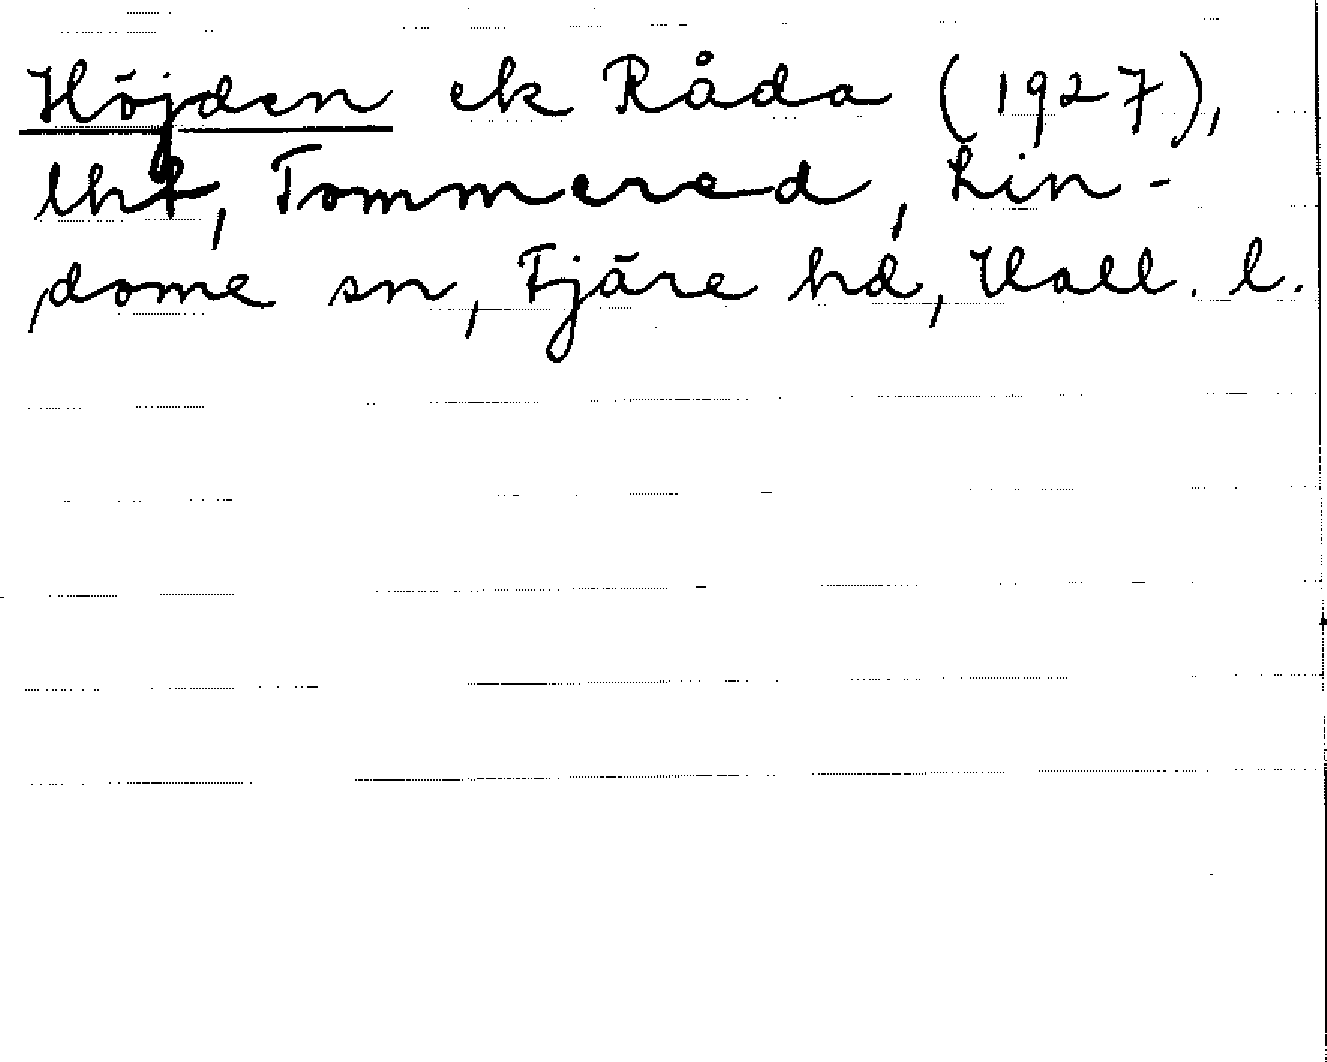 Höjden ek Råda (1927),
lht, Tommered, Lin-
dome sn, Fjäre hd, Hall. l.